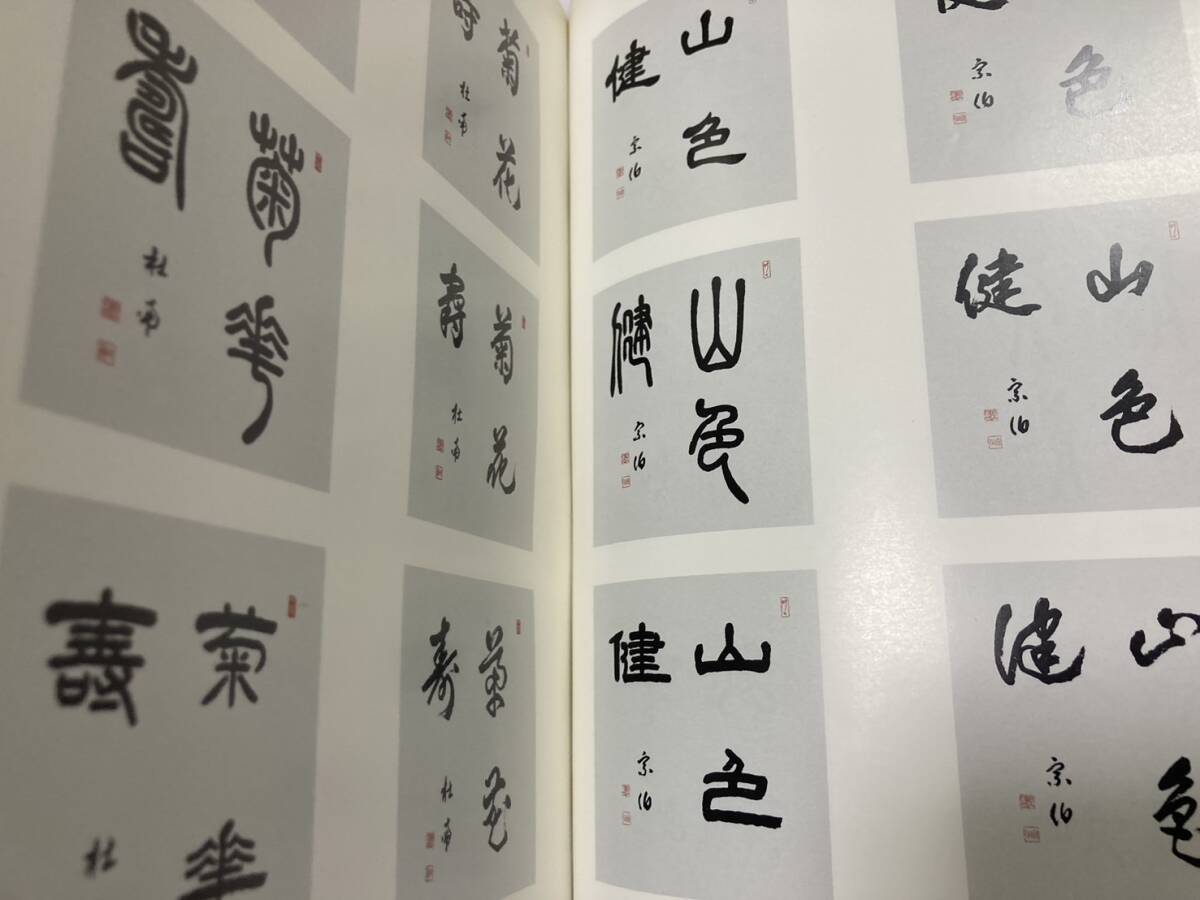 色
健
宗伯
山色
健
宗伯
山色
健
宗伯
山色
健
宗伯
山色
健
宗伯
山色
健
宗伯
菊花
杜甫
菊花
壽
杜甫
菊花
寿
杜甫
菊華
壽
杜甫
菊華
壽
杜